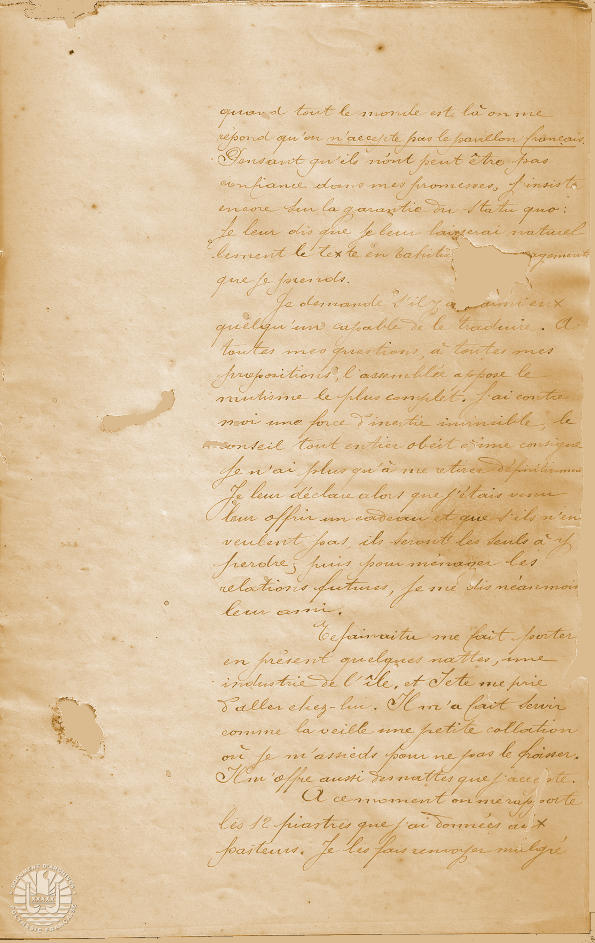 quand tout le monde est là on me
répond qu'on n'accepte pas le pavillon français.
Pensant qu'ils n'ont peut être pas
confiance dans mes promesses, j'insiste
encore sur la garantie du Statu quo:
Je leur dis que je leur laisserai naturel
lement le texte en tahitie
que je prends.
Je demande s'il y a
quelqu'un capable de le traduire. A
toutes mes questions, à toutes mes
propositions, l'assemblée oppose le
mutisme le plus complet. J'ai contre
moi une force d'inertie invincible, le
conseil tout entier obéit à une consigne
Je n'ai plus qu'à me retirer définitivement
Je leur déclare alors que j'étais venu
leur offrir un cadeau et que s'ils n'en
veulent pas, ils seront les seuls à y
perdre; puis pour ménager les
relations futures, je me dis néanmoins
leur ami.
me fait porter
en présent quelques nattes, une
industrie de l'île, et me prie
d'aller chez-lui. Il m'a fait servir
comme la veille une petite collation
où je m'assieds pour ne pas le froisser.
Il m'offre aussi des nattes que j'accepte.
A ce moment on me rapporte
les 12 piastres que j'ai données aux
pasteurs. Je les fais renvoyer malgré